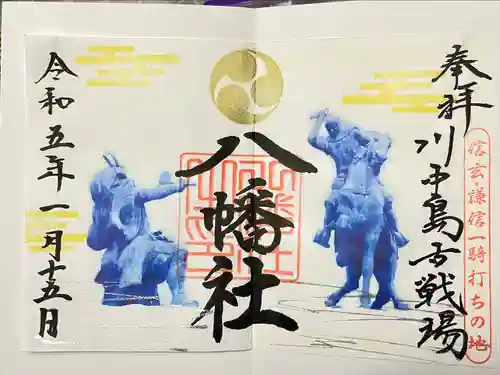 奉拝川中島古戦場
信玄・謙信一騎打ちの地
八幡社
令和五年一月十五日